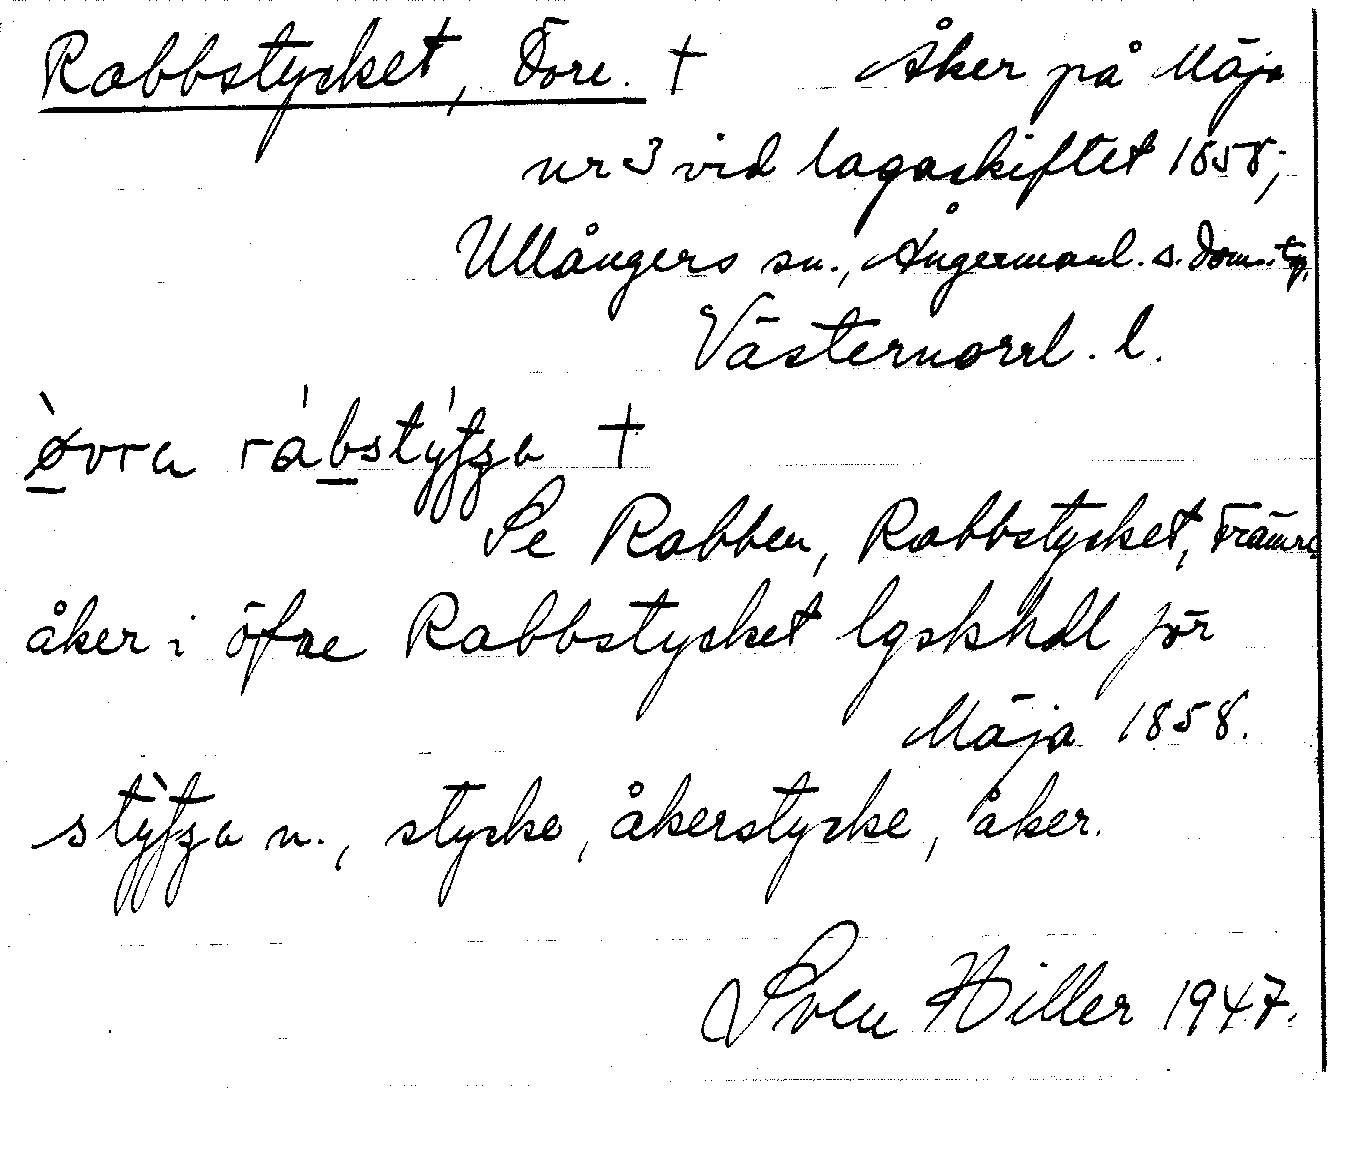 Rabbstycket, Övre. † Åker på Mäja
nr 3 vid lagaskiftet 1858;
Ullångers sn., Ångermanl. s. doms.tg,
Västernorrl. l.
øvra rabstytʃa †
Se Rabben, Rabbstycket, Främre
åker i öfre Rabbstycket lgskhdl för
Mäja 1858.
stytʃa n., stycke, åkerstycke, åker.
Sven Hiller 1947.